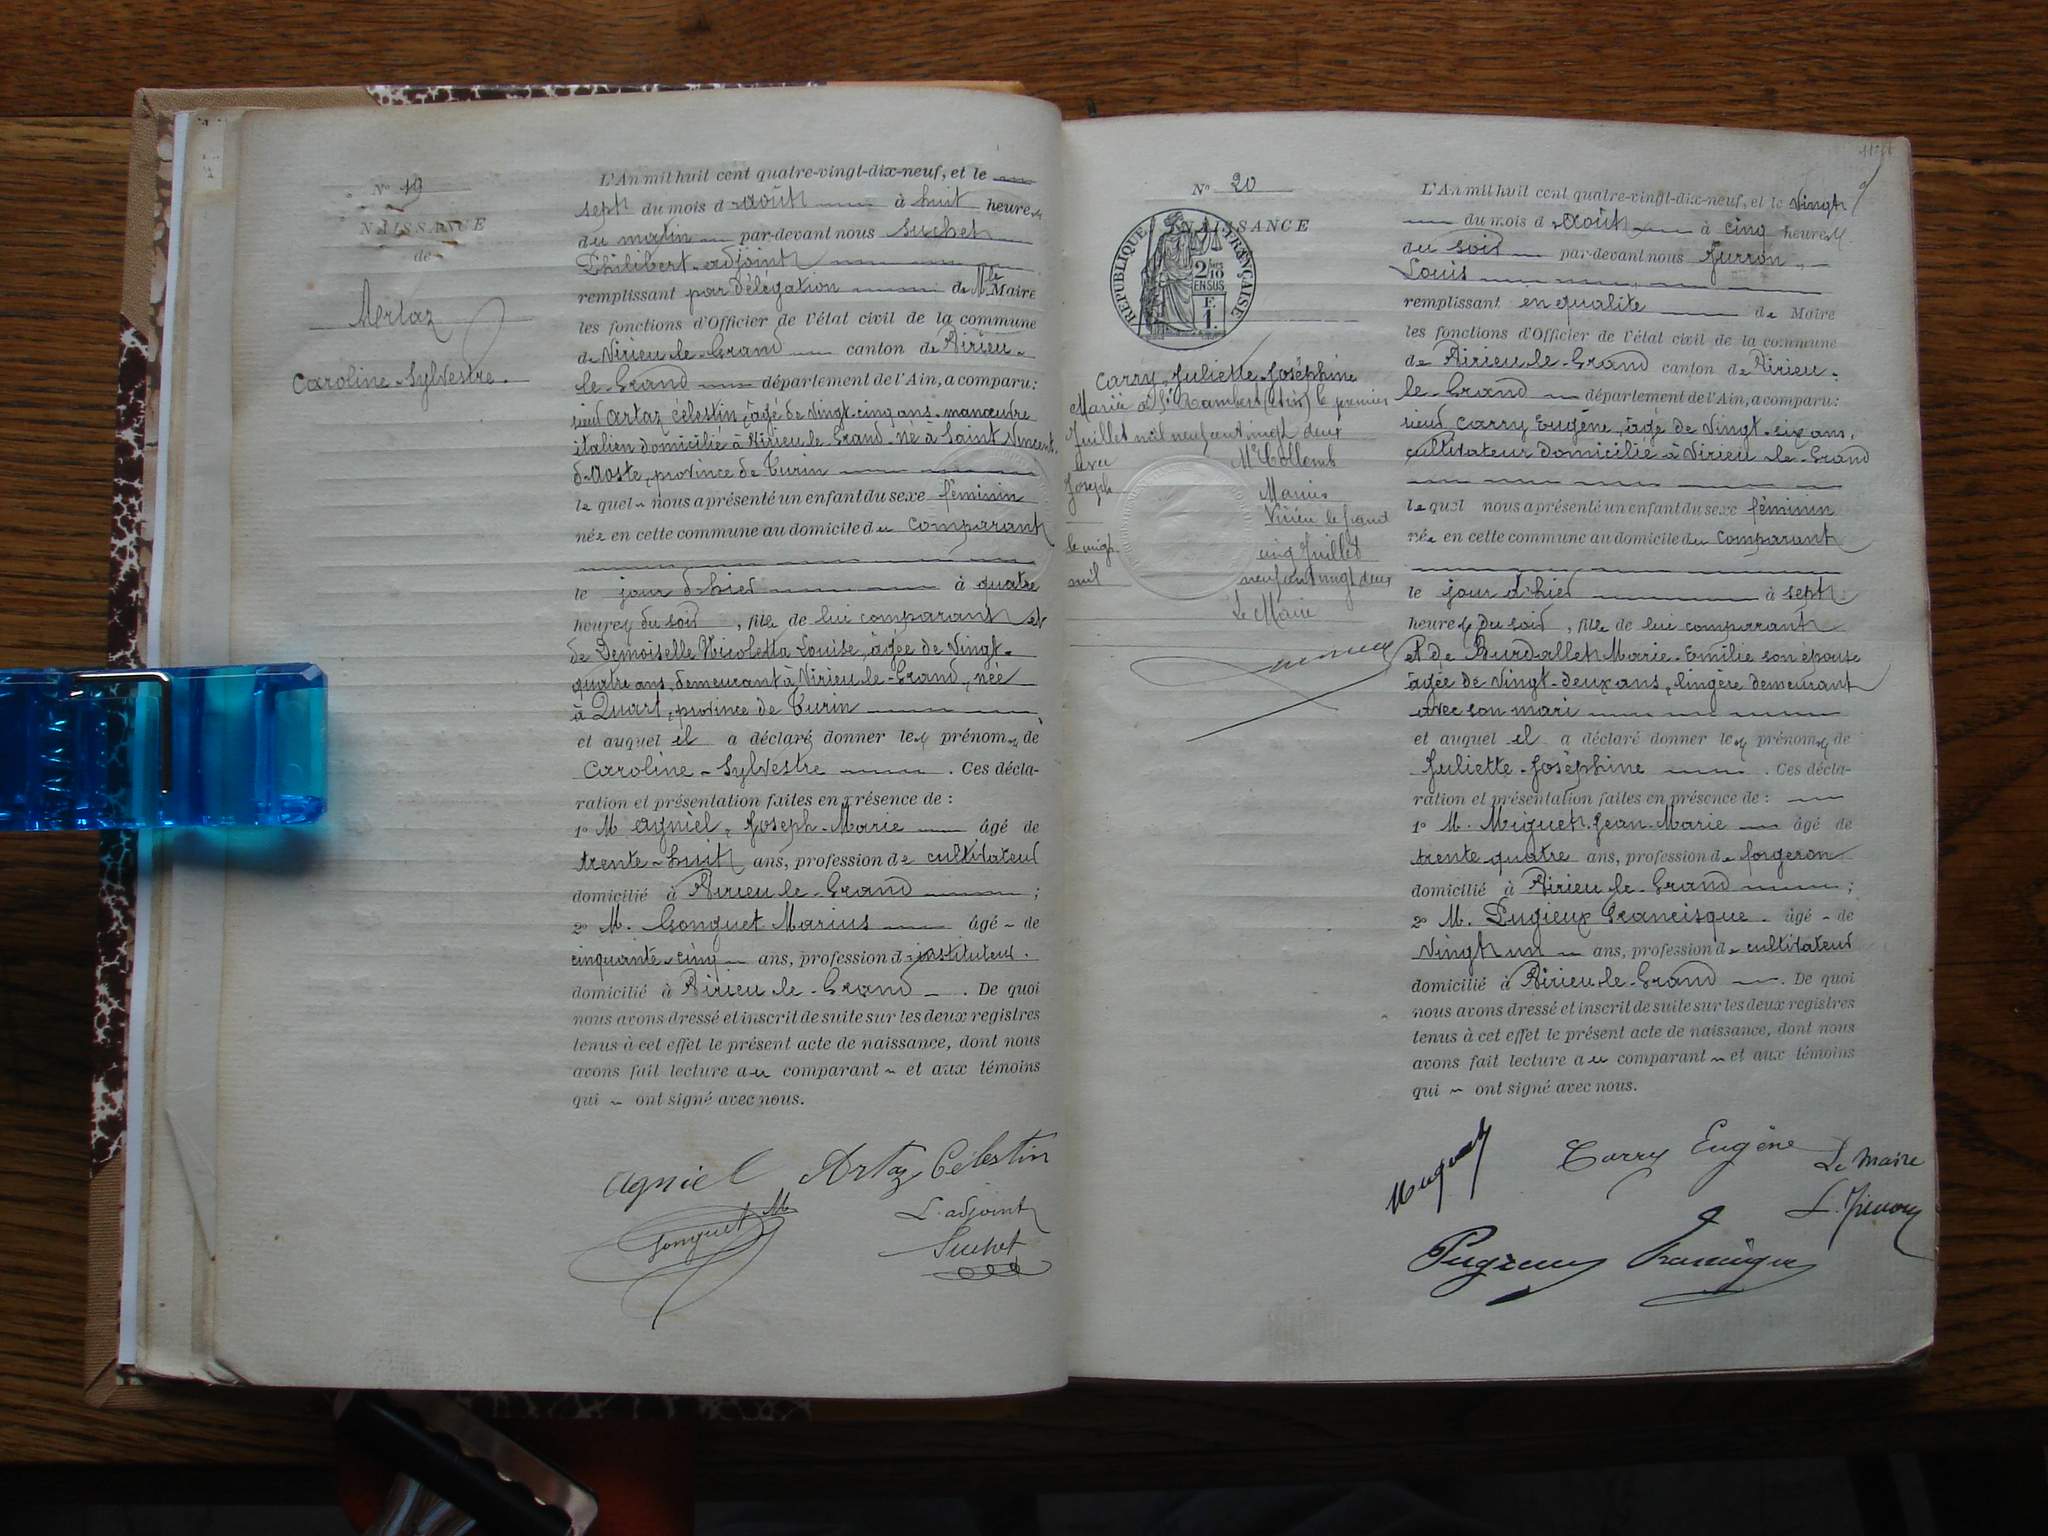 N° 19
NAISSANCE
de
Artaz
Caroline-Sylvestre.
L'An mil huit cent quatre-vingt-dix-neuf, et le
sept du mois d'août à huit heures
du matin par-devant nous Suchet
Philibert-adjoint
remplissant par délégation de Mr le Maire
les fonctions d'Officier de l'état civil de la commune
de Virieu-le-Grand canton de Virieu-
le-Grand département de l'Ain, a comparu:
sieur Artaz Célestin, âgé de vingt-cinq ans, manœuvre
italien domicilié à Virieu-le-Grand, né à Saint Vincent
d'Aoste, province de Turin
lequel nous a présenté un enfant du sexe féminin
née en cette commune au domicile du comparant
le jour d'hier à quatre
heures du soir, fille de lui comparant et
de Demoiselle Nicoletta Louise, âgée de vingt-
quatre ans, demeurant à Virieu-le-Grand, née
à Quart, province de Turin
et auquel il a déclaré donner les prénoms de
Caroline-Sylvestre. Ces décla-
ration et présentation faites en présence de:
1° M. Agniel, Joseph-Marie âgé de
trente-huit ans, profession de cultivateur
domicilié à Virieu-le-Grand;
2° M. Gonguet Marius âgé de
cinquante-cinq ans, profession d'instituteur.
domicilié à Virieu-le-Grand. De quoi
nous avons dressé et inscrit de suite sur les deux registres
tenus à cet effet le présent acte de naissance, dont nous
avons fait lecture au comparant et aux témoins
qui ont signé avec nous.
Agniel Artaz Célestin
Gonguet M L'adjoint
Suchet
N° 20
NAISSANCE
RÉPUBLIQUE FRANÇAISE
2/10
EN SUS
F.
1.
Carry, Juliette-Joséphine
Mariée à St Rambert (Ain) le premier
Juillet mil neuf cent vingt deux
avec Mr Collomb
Joseph Marius
Virieu le grand
le vingt cinq Juillet
mil neuf cent vingt deux
Le Maire
L'An mil huit cent quatre-vingt-dix-neuf, et le vingt
du mois d'août à cinq heures
du soir par-devant nous
Louis
remplissant en qualité de Maire
les fonctions d'Officier de l'état civil de la commune
de Virieu-le-Grand canton de Virieu-
le-Grand département de l'Ain, a comparu:
sieur Carry Eugène, âgé de vingt-six ans,
cultivateur domicilié à Virieu-le-Grand
lequel nous a présenté un enfant du sexe féminin
née en cette commune au domicile du comparant
le jour d'hier à sept
heures du soir, fille de lui comparant
et de Burdallet Marie-Emilie son épouse
âgée de vingt-deux ans, lingère demeurant
avec son mari
et auquel il a déclaré donner les prénoms de
Juliette-Joséphine. Ces décla-
ration et présentation faites en présence de:
1° M. Miguet Jean-Marie âgé de
trente quatre ans, profession de forgeron
domicilié à Virieu-le-Grand;
2° M. Pugieux Francisque âgé de
vingt un ans, profession de cultivateur
domicilié à Virieu-le-Grand. De quoi
nous avons dressé et inscrit de suite sur les deux registres
tenus à cet effet le présent acte de naissance, dont nous
avons fait lecture au comparant et aux témoins
qui ont signé avec nous.
Miguet Carry Eugène Le Maire
Pugieux Francisque